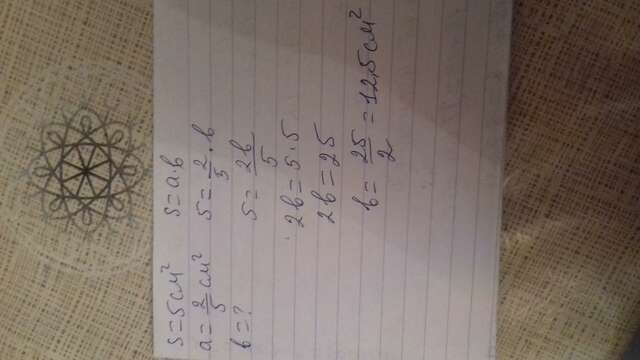 S=5см² S=a·b
a=2/5см² 5=2/5·b
b=? 5=2b/5
2b=5·5
2b=25
b=25/2=12,5см²